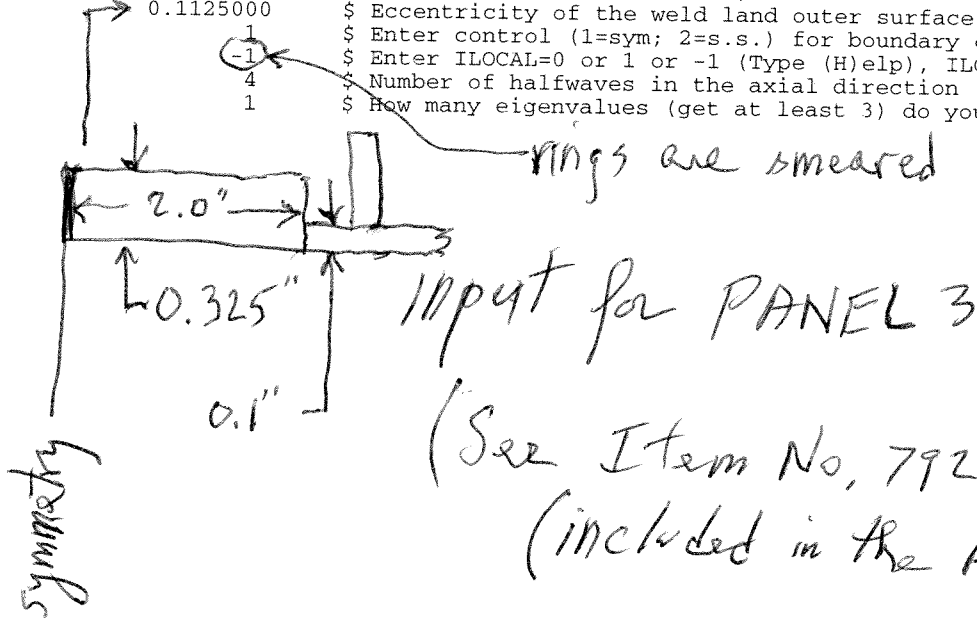 0.1125000 $ Eccentricity of the weld land outer surface
1 $ Enter control (1=sym; 2=s.s.) for boundary
-1 $ Enter ILOCAL=0 or 1 or -1 (Type (H)elp), ILO
4 $ Number of halfwaves in the axial direction
1 $ How many eigenvalues (get at least 3) do you
rings are smeared
2.0"
0.325"
Input for PANEL3
0.1"
(See Item No. 792
(included in the
symmetry